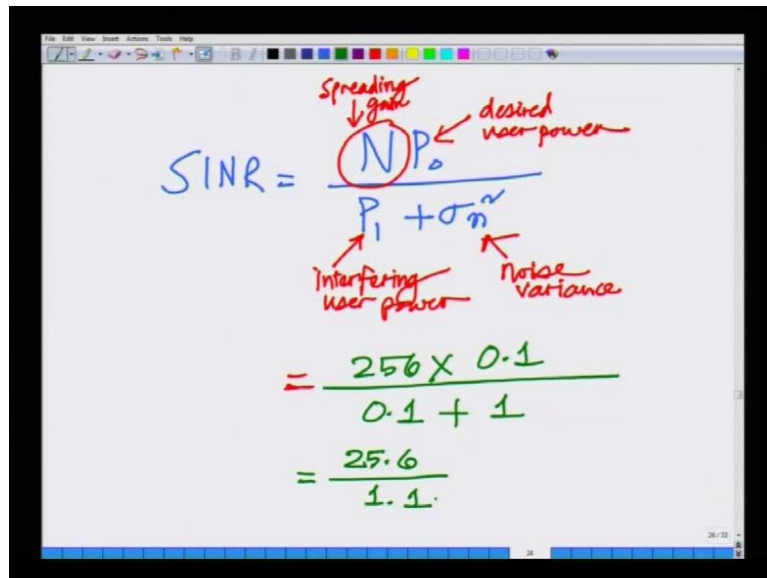 File Edit View Insert Actions Tools Help
spreading
gain
desired
user power
SINR = N P₀ / P₁ + σn²
interfering
user power
noise
variance
= 256 × 0.1 / 0.1 + 1
= 25.6 / 1.1.
24 / 33
24